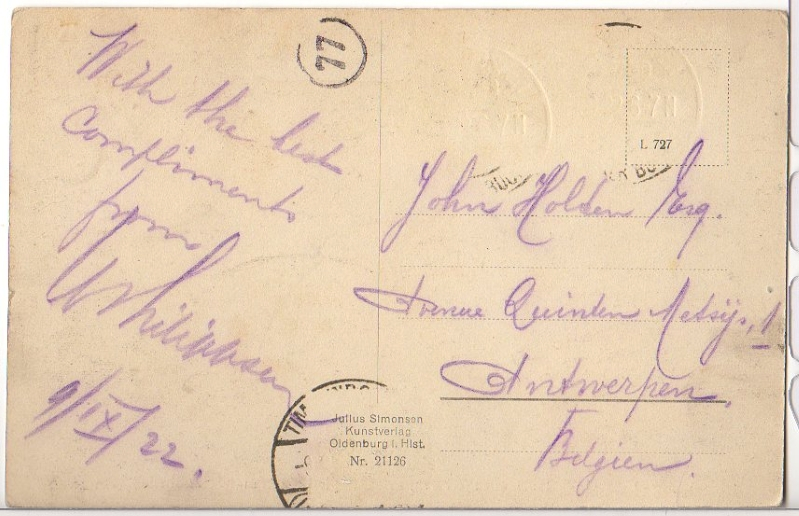 77
With the best
compliments
from
W Philippsen
9/IX/22.
6 7 N
1. 727
John Holden Esq.
Avenue Quinten Metsijs, 1
Antwerpen,
Belgien.
Julius Simonsen
Kunstverlag
Oldenburg i. Hlst.
Nr. 21126